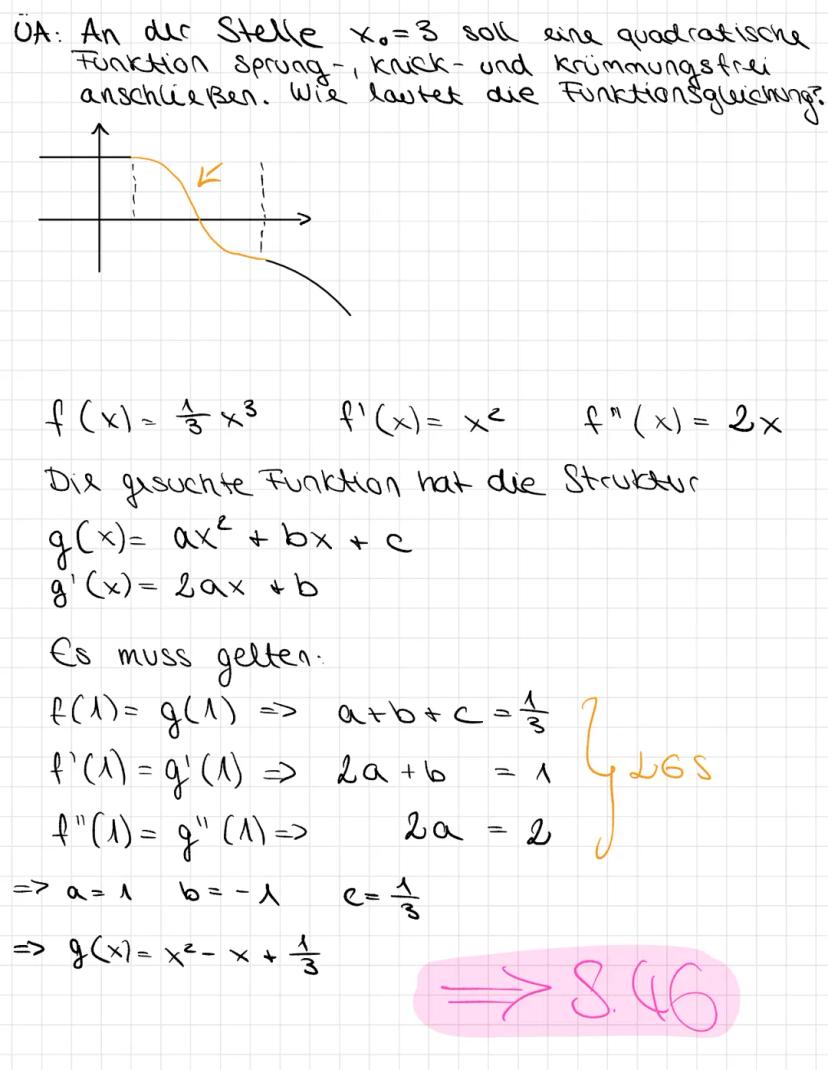 ÜA: An der Stelle x₀=3 soll eine quadratische
Funktion sprung-, knick- und krümmungsfrei
anschließen. Wie lautet die Funktionsgleichung?
f(x) = 1/3 x³ f'(x) = x² f"(x) = 2x
Die gesuchte Funktion hat die Struktur
g(x) = ax² + bx + c
g'(x) = 2ax + b
Es muss gelten:
f(1) = g(1) => a+b+c = 1/3
f'(1) = g'(1) => 2a+b = 1
f"(1) = g"(1) => 2a = 2
LGS
=> a=1 b=-1 c=1/3
=> g(x) = x² - x + 1/3
=> S.46